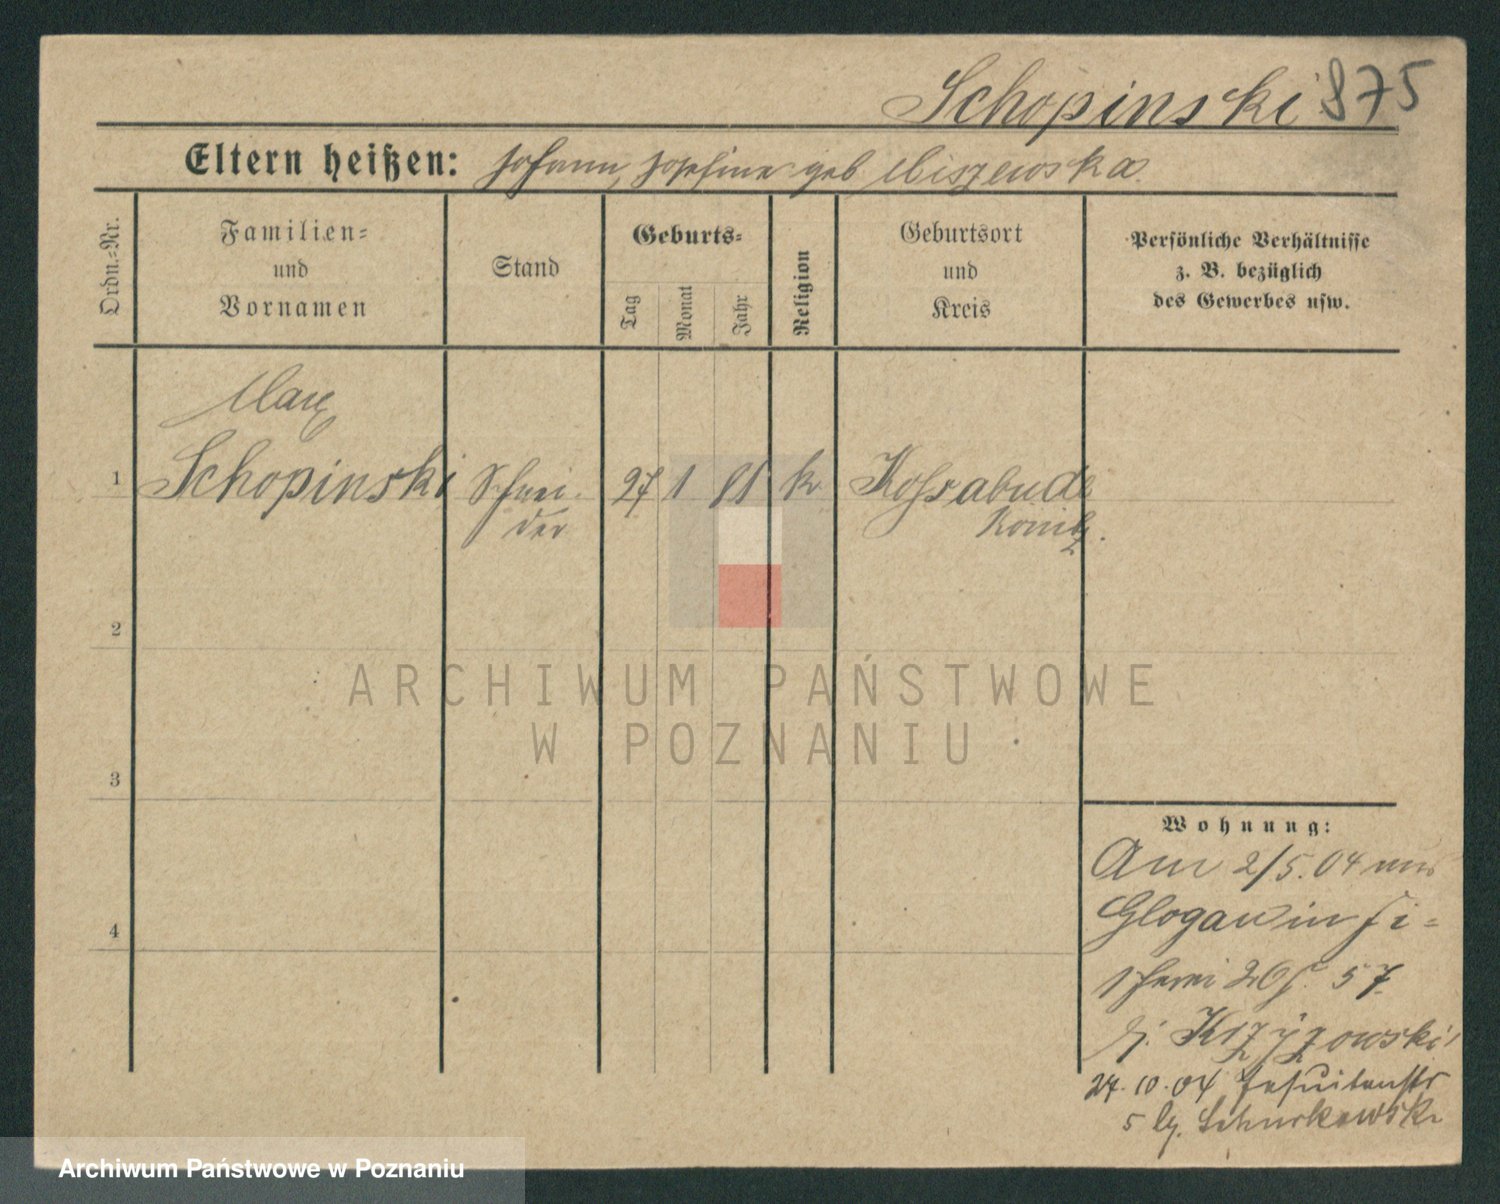 Schopinski 875
Eltern heißen: Johann, Josefine geb Miszewska
Ordn.=Nr.
Familien=
und
Vornamen
Stand
Geburts=
Tag
Monat
Jahr
Religion
Geburtsort
und
Kreis
Persönliche Verhältnisse
z. B. bezüglich
des Gewerbes usw.
Max
1 Schopinski Schnei- 27 1 81 k. Kossabude
der Konitz.
2
3
4
Wohnung:
Am 2/5.04 aus
Glogau in Fi=
scherei 20 57
Krzyzowski
24.10.04 Jesuitenstr
5 bg.
ARCHIWUM PAŃSTWOWE
W POZNANIU
Archiwum Państwowe w Poznaniu